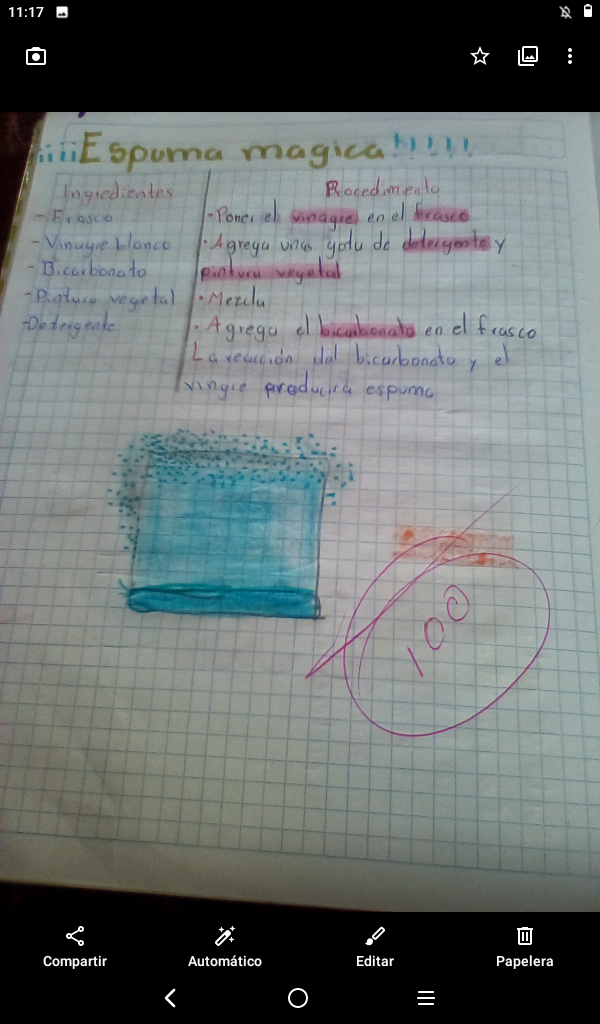 11:17
¡¡¡¡Espuma magica!!!!!
Ingredientes
- Frasco
- Vinagre blanco
- Bicarbonato
- Pintura vegetal
- Detergente
Procedimento
- Poner el vinagre en el frasco
· Agrega unas gotu de detergente y
pintura vegetal
· Mezcla
· Agrega el bicarbonato en el frasco
La reacción dal bicarbonato y el
vingre producira espuma
100
Compartir
Automático
Editar
Papelera